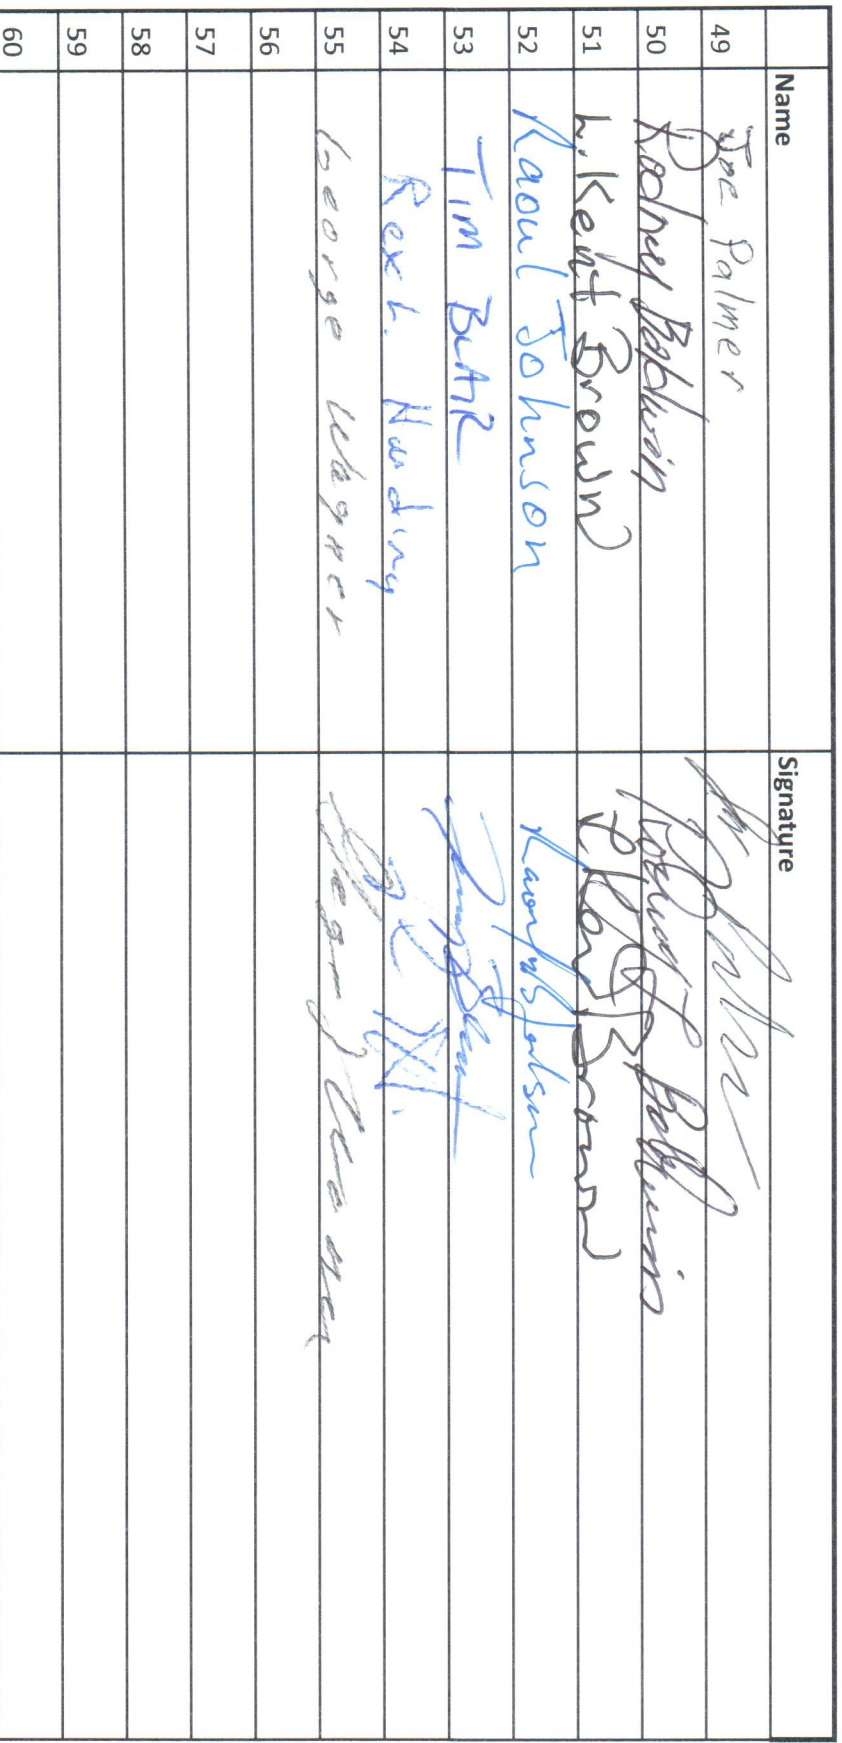 Name Signature
49 Joe Palmer
50 Rodney Baldwin
51 L. Kent Brown L Kent Brown
52 Raoul Johnson
53 TIM BLAIR
54 Rex L. Harding
55 George Wagner George Wagner
56
57
58
59
60